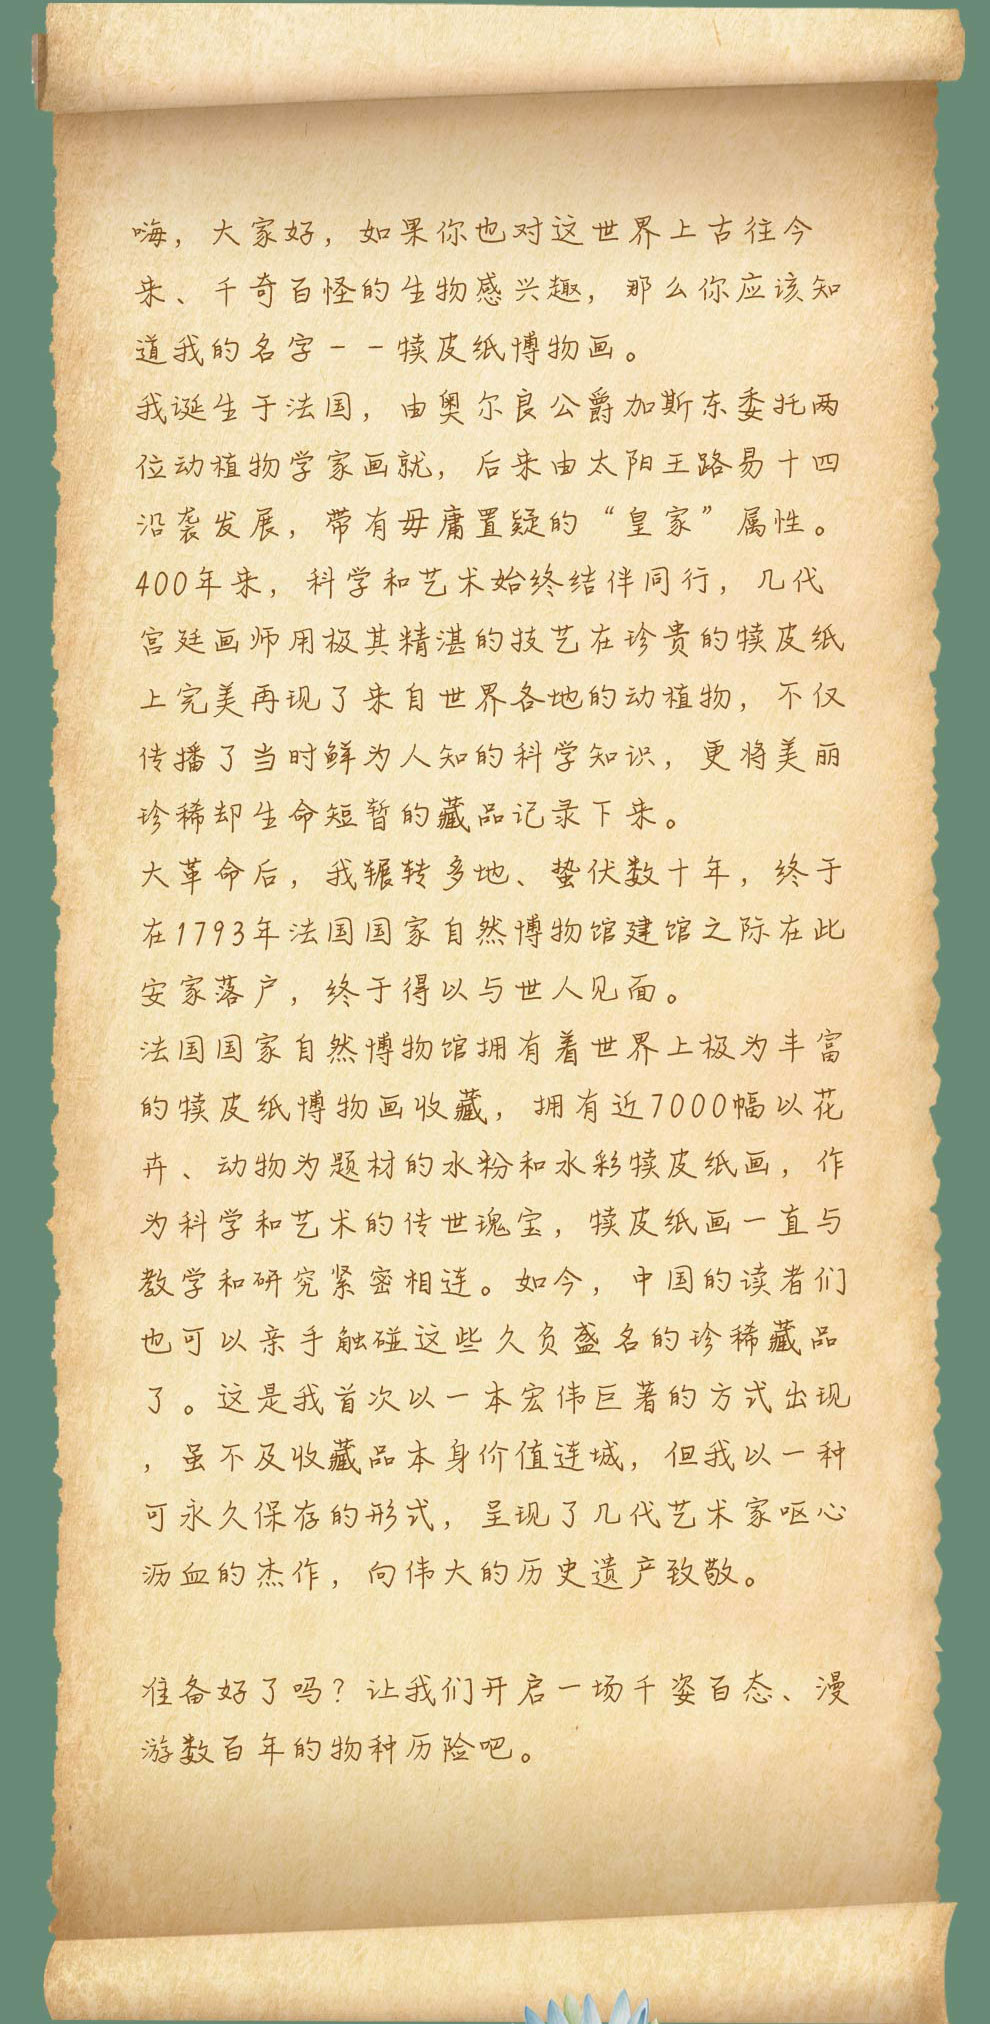 嗨，大家好，如果你也对这世界上古往今
来、千奇百怪的生物感兴趣，那么你应该知
道我的名字－－犊皮纸博物画。
我诞生于法国，由奥尔良公爵加斯东委托两
位动植物学家画就，后来由太阳王路易十四
沿袭发展，带有毋庸置疑的“皇家”属性。
400年来，科学和艺术始终结伴同行，几代
宫廷画师用极其精湛的技艺在珍贵的犊皮纸
上完美再现了来自世界各地的动植物，不仅
传播了当时鲜为人知的科学知识，更将美丽
珍稀却生命短暂的藏品记录下来。
大革命后，我辗转多地、蛰伏数十年，终于
在1793年法国国家自然博物馆建馆之际在此
安家落户，终于得以与世人见面。
法国国家自然博物馆拥有着世界上极为丰富
的犊皮纸博物画收藏，拥有近7000幅以花
卉、动物为题材的水粉和水彩犊皮纸画，作
为科学和艺术的传世瑰宝，犊皮纸画一直与
教学和研究紧密相连。如今，中国的读者们
也可以亲手触碰这些久负盛名的珍稀藏品
了。这是我首次以一本宏伟巨著的方式出现
，虽不及收藏品本身价值连城，但我以一种
可永久保存的形式，呈现了几代艺术家呕心
沥血的杰作，向伟大的历史遗产致敬。
准备好了吗？让我们开启一场千姿百态、漫
游数百年的物种历险吧。